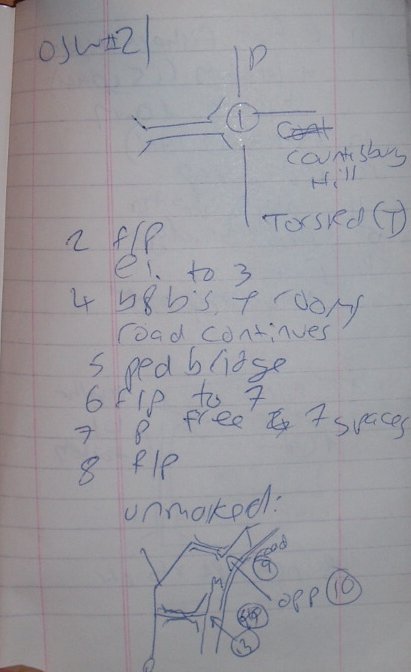 OSW#21
P
1
Countisbury
Hill
Torsted (T)
2 f/p
el. to 3
4 b&b's + rooms
road continues
5 ped bridge
6 f/p to 7
7 P free 7 spaces
8 f/p
unmarked:
road
9
opp 10
13